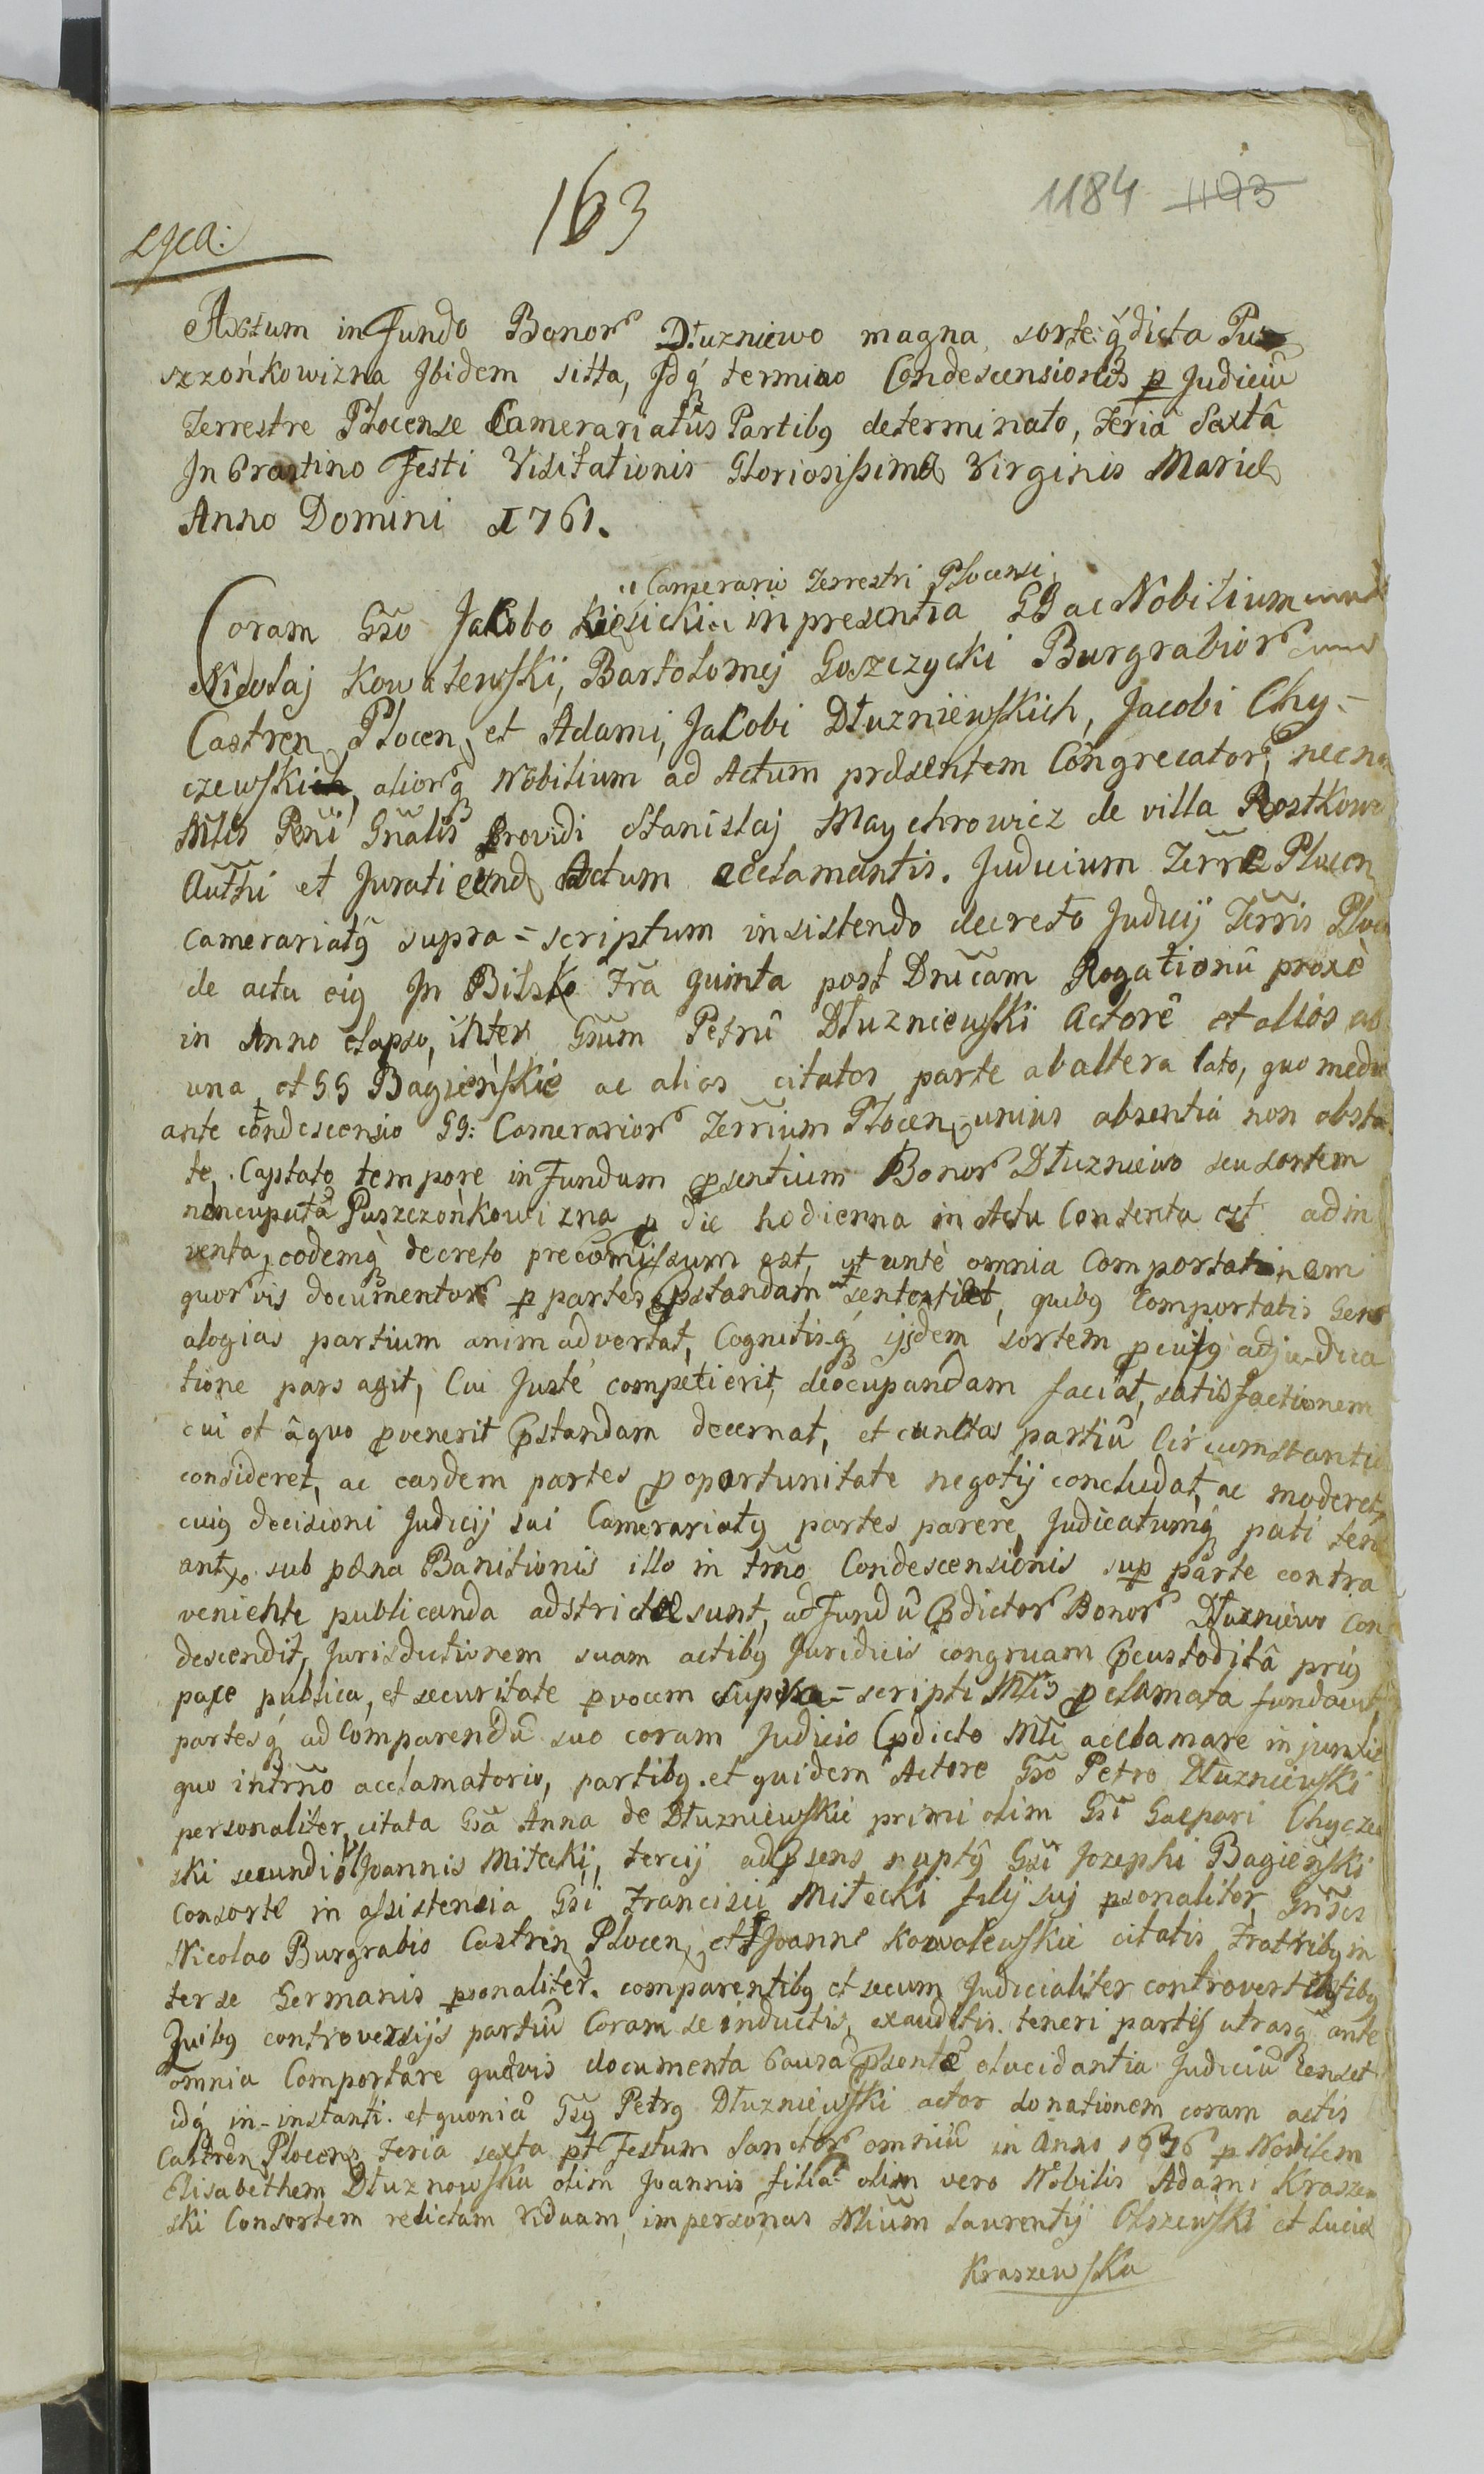 163
1184 1193
Lgca:
Actum in Fundo Bonor Dłuzniewo magna sorte q̨ dicta Pu
szczońkowizna Ibidem sitta, Idq́ termino Condescensionis p Judiciũ
Terrestre Plocense Camerariatûs Partibg determinato, Feriâ Sextâ
In Crastino Festi Visitationis Gloriosissimæ Virginis Mariæ
Anno Domini 1761.
Camerario Terrestri Plocensi
Coram Gso Jakobo in presentia GG ac Nobilium
Nicolaj Kowalewskij, Bartolomej Goszczycki Burgrabior
Castren Plocen, et Adami, Jacobi Dłuzniewskich, Jacobi Chy-
czewskich, aliorq́ Nobilium ad Actum præsentem Congrecator, necno
Mtis Reni Gnalis Providi Stanislaj Maychrowicz de villa Rostkowo
Authi et Jurati eund Actum acclamantis. Judicium Terre Plocen
Camerariatg supra = scriptum insistendo decreto Judicij Terris Ploc
de actu eig In Bilsko Fra quinta post Dnicam Rogationũ proxe
in Anno elapso, inter Gsum Petrũ Dłuzniewski Actorẽ et alios ab
una, et GG Bagieński ac alios citatos parte ab altera lato, quo medi
ante condescensio GG: Camerarior Terrium Plocen, unius absentiâ non obsta
te. Captato tempore in Fundum psentium Bonor Dłuzniewo seu sortem
nuncupatã Puszczońkowizna p die hodierna in Actu Contenta est adin
venta, eodemq̀ decreto precõmissum est, ut antè omnia Comportationem
quorvis documentor p partes pstandam sententiet, quibg Comportatis Gene
alogias partium animadvertat, Cognitis-q́ ijsdem sortem p cuiq adjudica
tione pars agit, Cui Justè competierit, deocupandam faciat, satisfactionem
cui et â quo pvenerit pstandam decernat, et cunctas partiũ Circumstantia
consideret, ac easdem partes p oportunitate negotij concludat, ac moderet,
cuig decisioni Judicij sui Camerariatg partes parere, Judicatumq́ pati tene
antr sub pœna Banitionis illo in tmo Condescensionis sup parte contra
veniente publicanda adstrictæ sunt, ad Fundũ pdictor Bonor Dłuzniewo Con
descendit, Jurisdictionem suam actibg Juridicis congruam pcustoditâ prig
pace publica, et securitate p vocem supra = scripti Mtis pclamata fundavit
partesq́ ad Comparendũ suo coram Judicio pdicto Mti acclamare injunxit
quo in tmo acclamatorio, partibg. et quidem Actore Gso Petro Dłuzniewski
personaliter, citata Gsa Anna de Dłuzniewskie primi olim Gsi Gaspari Chycze
ski secundi Joannis Miteckij, tercij ad psens nuptg Gsi Jozephi Bagieński
Consorte in assistensia Gsi Francisci Mitecki filij suj psonaliter, Gnises
Nicolao Burgrabio Castren Plocen, et Joanne Kowalewskie citatis Fratribg in
ter se Germanis psonaliter. comparentibg et secum Judicialiter controvertentibg
Quibg controversijs partiũ Coram se inductis, exauditis. teneri partes utrasq́ ante
omnia Comportare quævis documenta Causã psentẽ elucidantia Judiciũ censet
idq́ in-instanti. et quoniã Gsg Petrg Dłuzniewski actor donationem coram actis
Castren Plocens Feria sexta pt Festum Sanctor omniũ in Anno 1676 p Nobilem
Elisabethem Dłuznowska olim Joannis filia olim vero Nobilis Adami Krasze
ski Consortem relictam viduam, in personas Nlium Laurentij Olszewski et Luciæ
Kraszewska